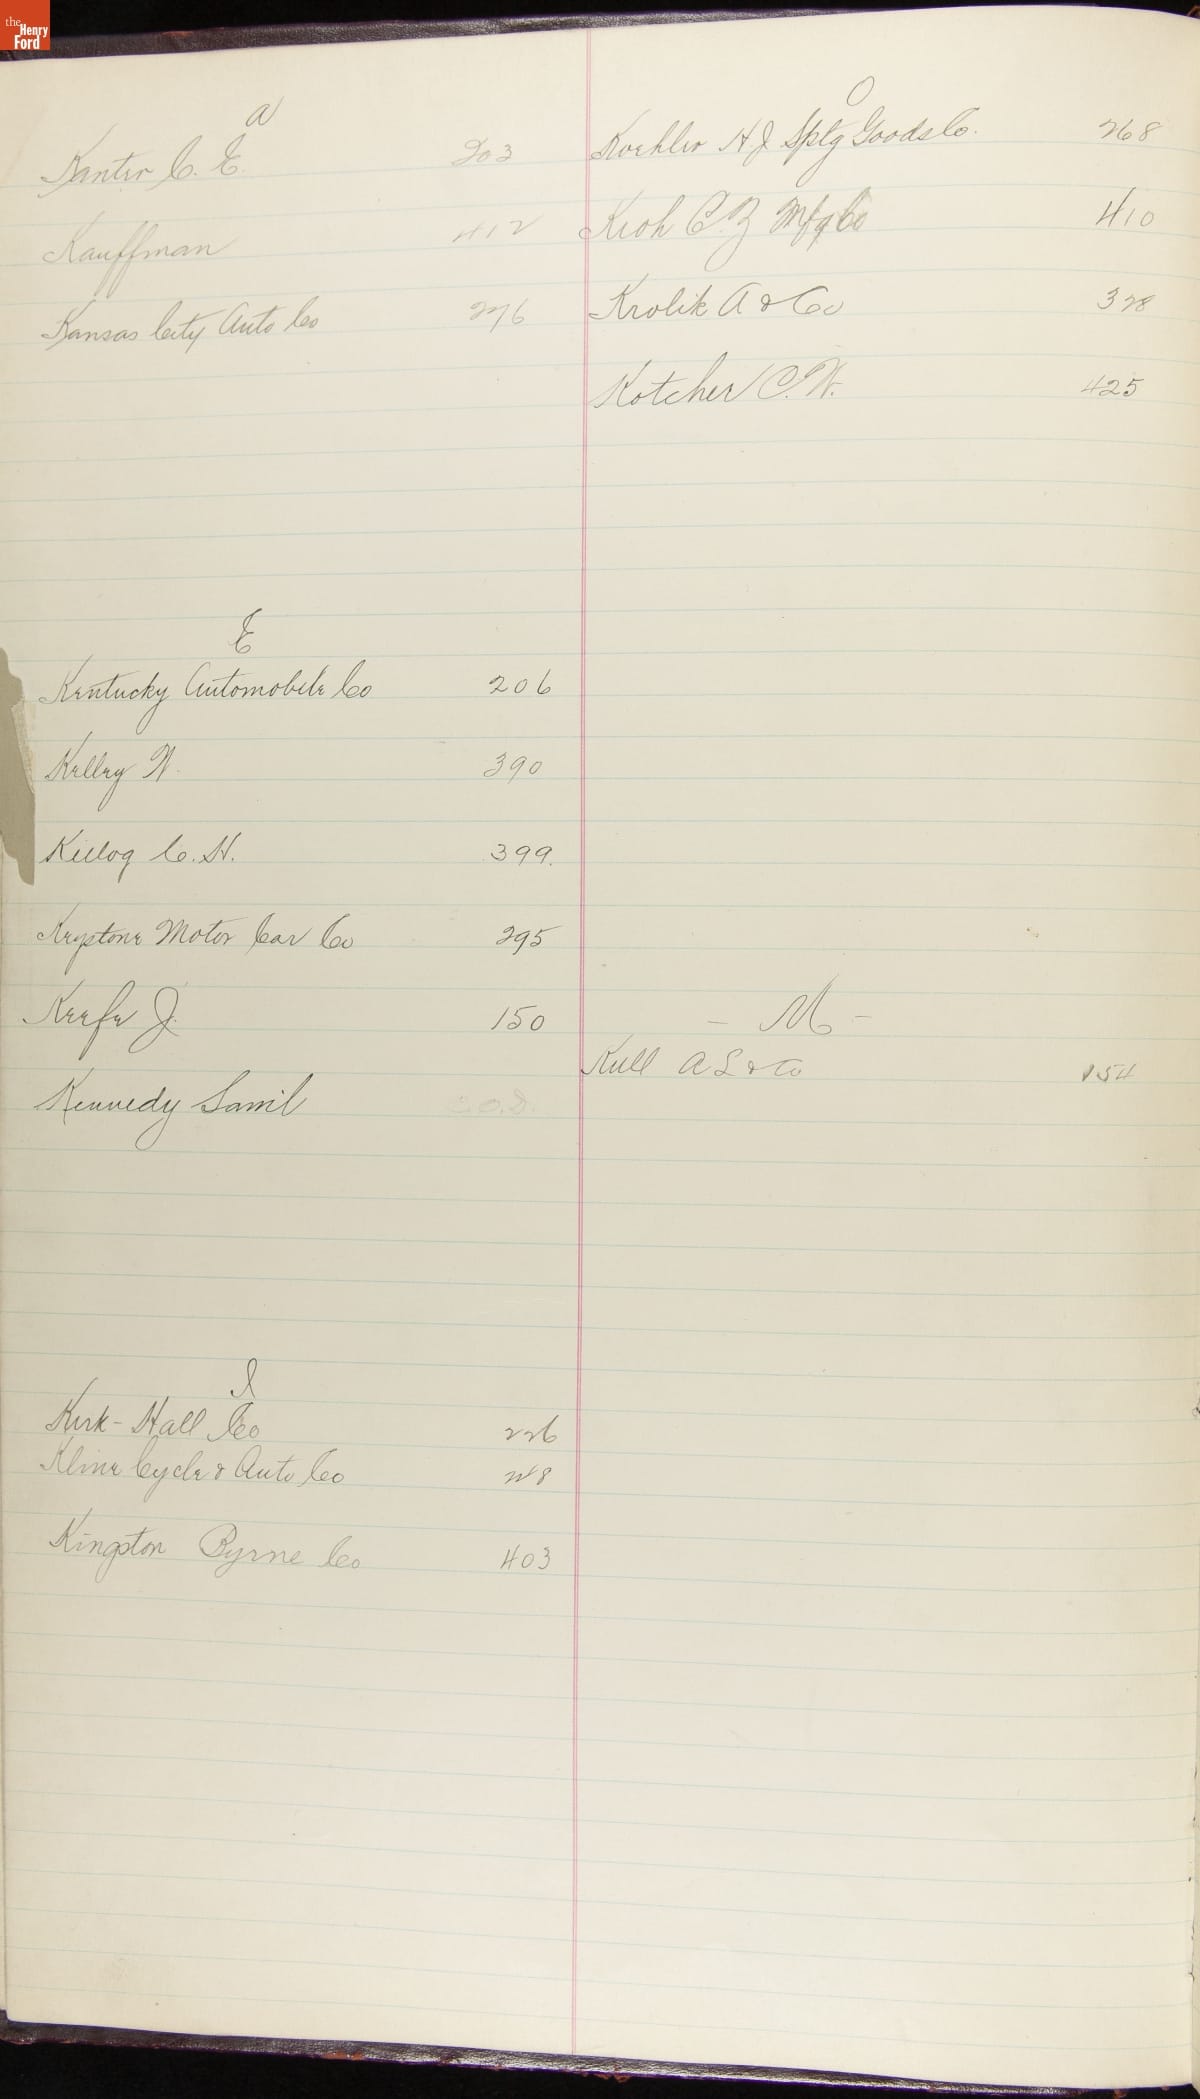 the Henry Ford
a
Kanter C. E. 203
Kauffman 412
Kansas City Auto Co 276
E
Kentucky Automobile Co 206
Kelley W. 390
Kellog C. H. 399.
Keystone Motor Car Co 295
Keefe J. 150
Kennedy Saml C.O.D.
I
Kirk-Hall Co 226
Kline Cycle & Auto Co
Kingston Byrne Co 403
O
Koehler H J Sptg Goods Co. 268
Kroh C. Z Mfg Co 410
Krolik A & Co 328
Kotcher C. W. 425
- M -
Kull A L & Co 154